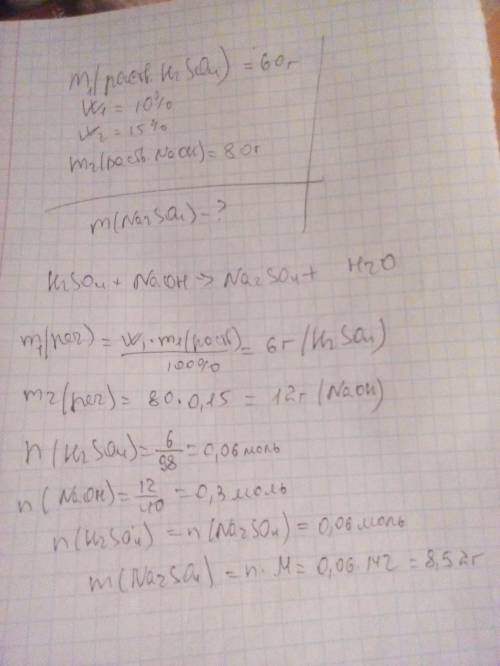 m₁(раств. H₂SO₄) = 60 г
W₁ = 10%
W₂ = 15%
m₂(раств. NaOH) = 80 г
m(Na₂SO₄) - ?
H₂SO₄ + NaOH → Na₂SO₄ + H₂O
m₁(реч) = W₁ · m₁(раств) / 100% = 6 г (H₂SO₄)
m₂(реч) = 80 · 0,15 = 12 г (NaOH)
n(H₂SO₄) = 6/98 = 0,06 моль
n(NaOH) = 12/40 = 0,3 моль
n(H₂SO₄) = n(Na₂SO₄) = 0,06 моль
m(Na₂SO₄) = n · M = 0,06 · 142 = 8,52 г